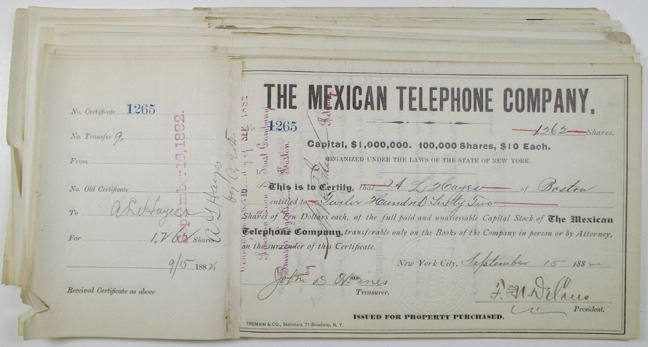 No. Certificate 1265
No. Transfer 9.
From
No. Old Certificate
To A L Hayes
For 1,262 Shares
9/15 1882
Received Certificate as above
A L Hayes
September 16, 1882.
THE MEXICAN TELEPHONE COMPANY.
1265
1262 Shares.
Capital, $1,000,000. 100,000 Shares, $10 Each.
ORGANIZED UNDER THE LAWS OF THE STATE OF NEW YORK.
This is to Certify, that A L Hayes of Boston
entitled to Twelve Hundred Sixty Two
Shares of Ten Dollars each, of the full paid and unassessable Capital Stock of The Mexican
Telephone Company, transferable only on the Books of the Company in person or by Attorney,
on the surrender of this Certificate.
New York City, September 15 1882
John D
Treasurer.
President.
ISSUED FOR PROPERTY PURCHASED.
& CO., Stationers, 71 Broadway, N. Y.